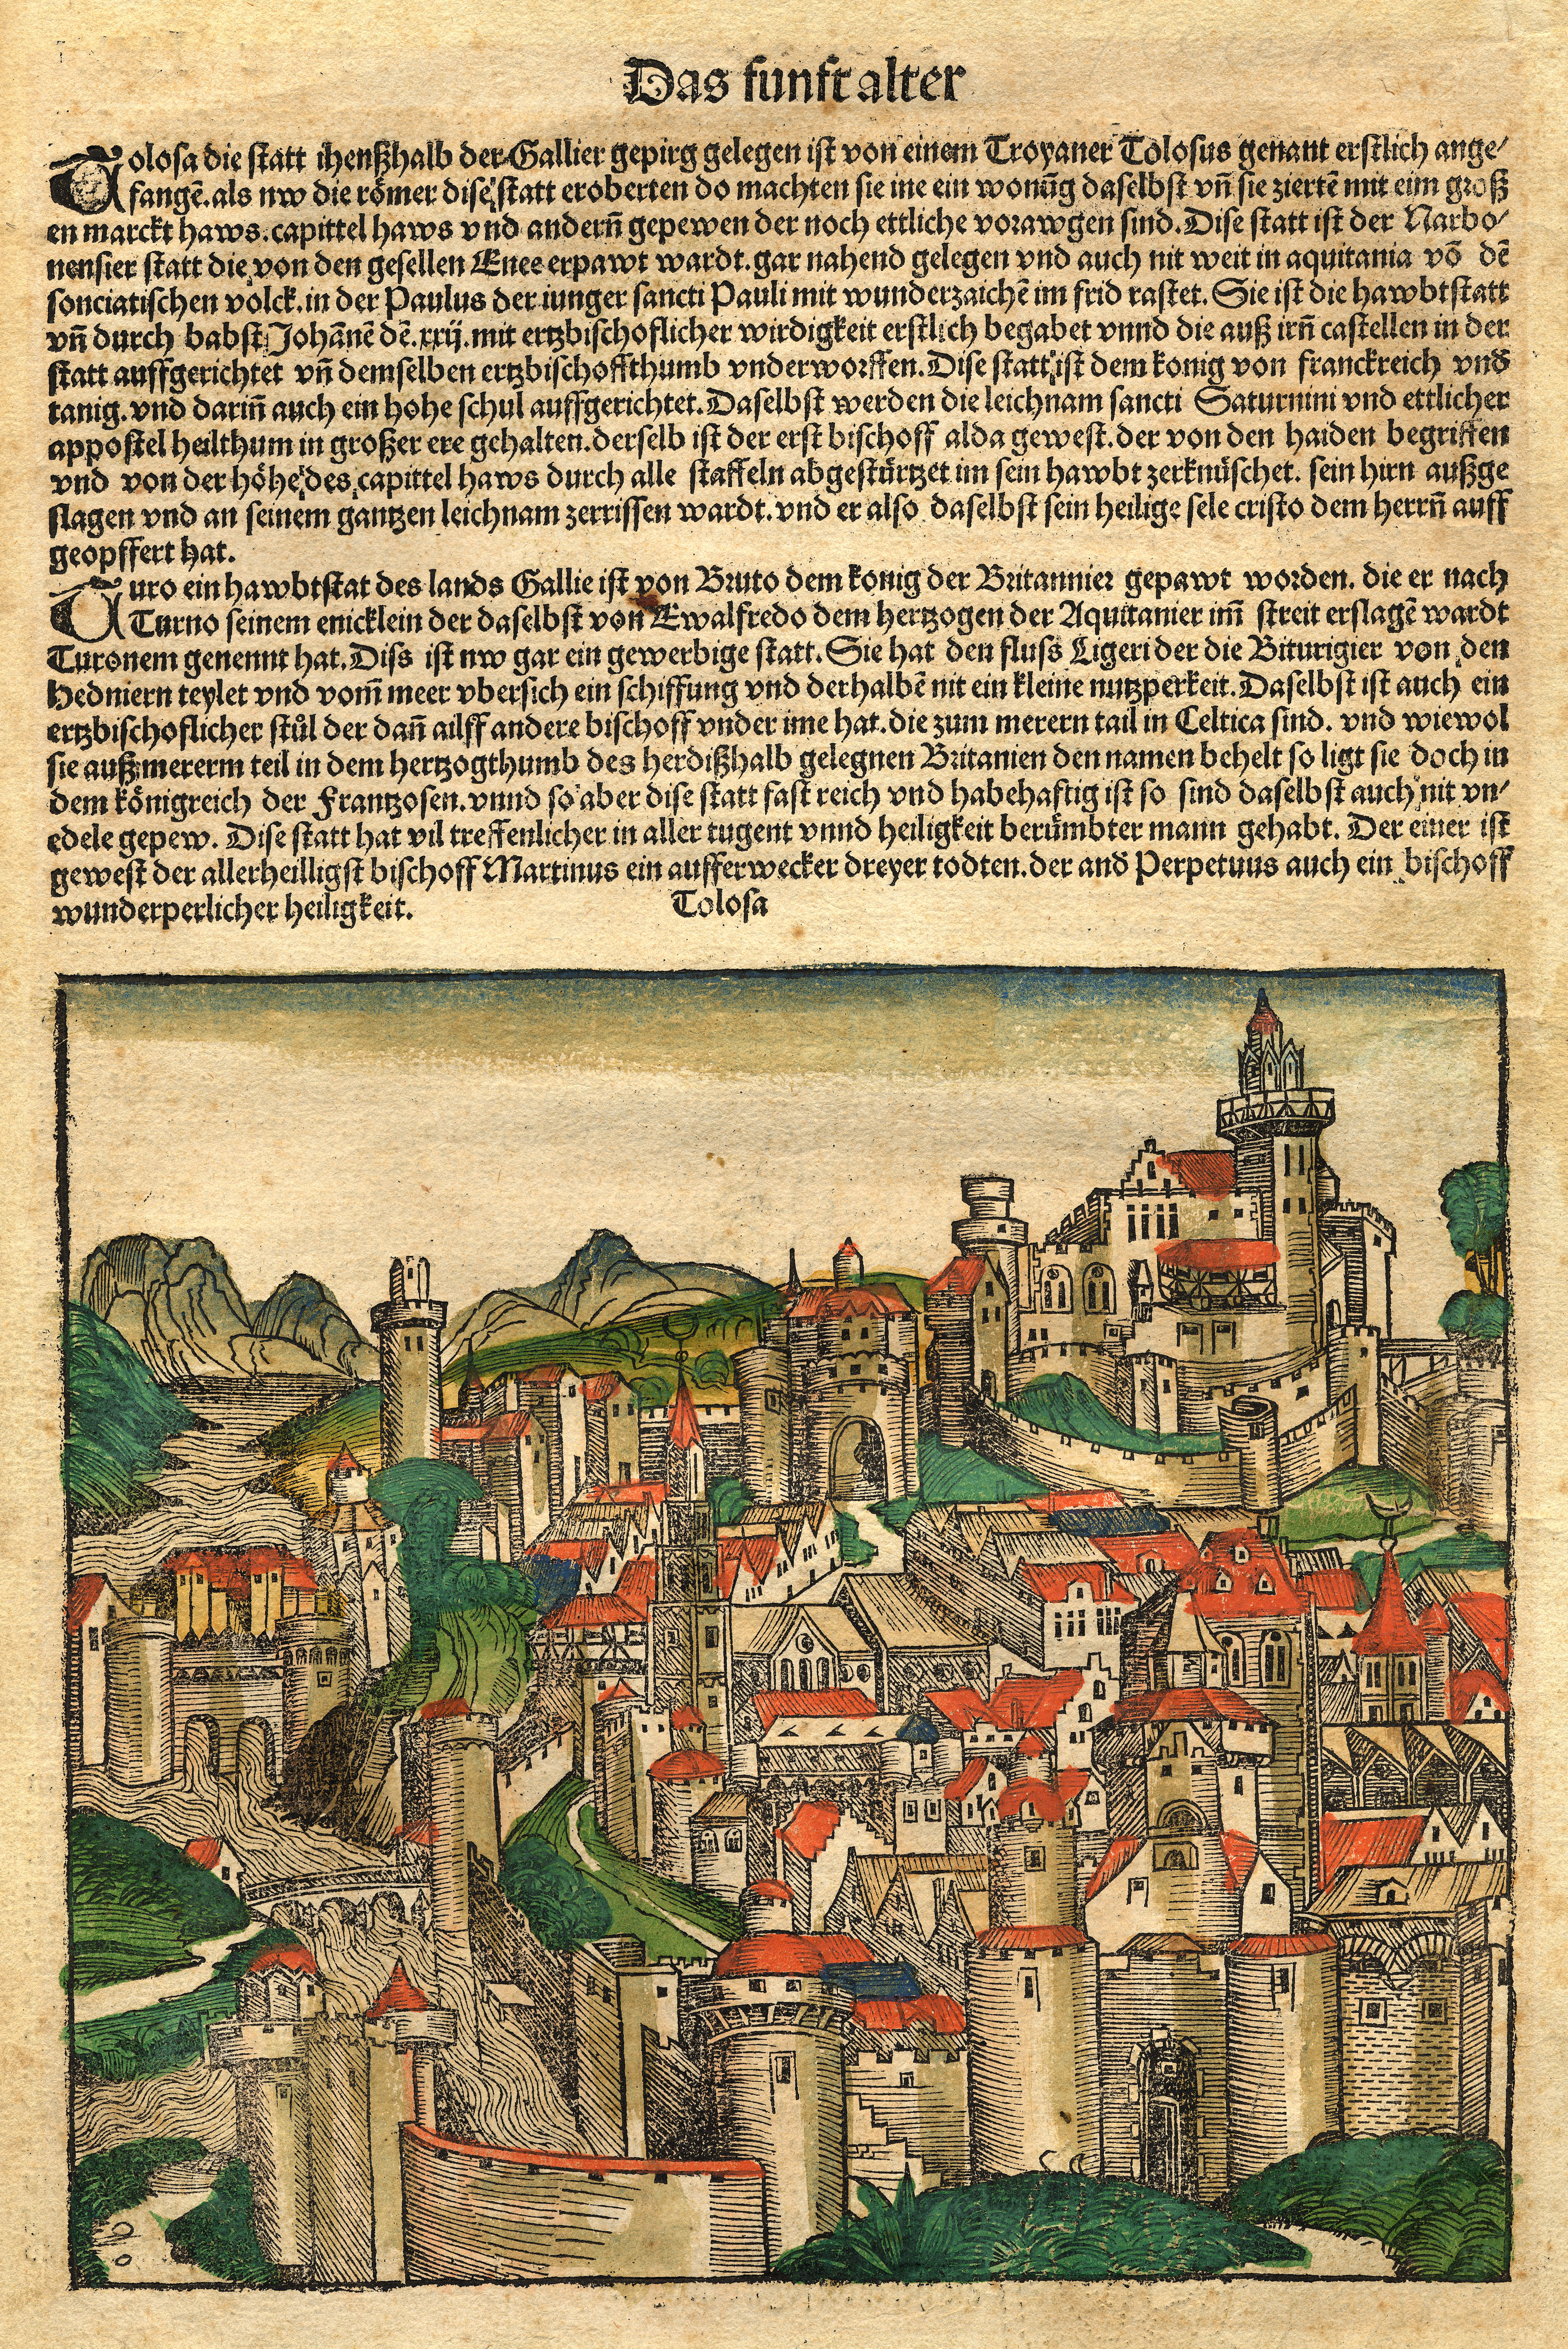 Das funft alter
Tolosa die statt ihenßhalb der Gallier gepirg gelegen ist von einem Troyaner Tolosus genant erstlich ange/
fangē. als nw die römer dise statt eroberten do machten sie ine ein wonūg daselbst vn̄ sie ziertē mit eim groß
en marckt haws. capittel haws vnd andern̄ gepewen der noch ettliche vorawgen sind. Dise statt ist der Narbo/
nensier statt die von den gesellen Enee erpawt wardt. gar nahend gelegen vnd auch nit weit in aquitania vō dē
sonciatischen volck. in der Paulus der iunger sancti Pauli mit wunderzaichē im frid rastet. Sie ist die hawbtstatt
vn̄ durch babst Johānē dē .xxij. mit ertzbischoflicher wirdigkeit erstlich begabet vnnd die auß irn̄ castellen in der
statt auffgerichtet vn̄ demselben ertzbischoffthumb vnderworffen. Dise statt ist dem konig von franckreich vnd̄
tanig. vnd darin̄ auch ein hohe schul auffgerichtet. Daselbst werden die leichnam sancti Saturnini vnd ettlicher
appostel heilthum in großer ere gehalten. derselb ist der erst bischoff alda gewest. der von den haiden begriffen
vnd von der höhe des capittel haws durch alle staffeln abgestürtzet im sein hawbt zerknüschet. sein hirn außge
slagen vnd an seinem gantzen leichnam zerrissen wardt. vnd er also daselbst sein heilige sele cristo dem herrn̄ auff
geopffert hat.
Turo ein hawbtstat des lands Gallie ist von Bruto dem konig der Britannier gepawt worden. die er nach
Turno seinem enicklein der daselbst von Ewalfredo dem hertzogen der Aquitanier im̄ streit erslagē wardt
Turonem genennt hat. Diss ist nw gar ein gewerbige statt. Sie hat den fluss Ligeri der die Biturigier von den
Hedniern teylet vnd vom̄ meer vbersich ein schiffung vnd derhalbē nit ein kleine nutzperkeit. Daselbst ist auch ein
ertzbischoflicher stůl der dan̄ ailff andere bischoff vnder ime hat. die zum merern tail in Celtica sind. vnd wiewol
sie auß mererm teil in dem hertzogthumb des herdißhalb gelegnen Britanien den namen behelt so ligt sie doch in
dem königreich der Frantzosen. vnnd so aber dise statt fast reich vnd habehaftig ist so sind daselbst auch nit vn/
edele gepew. Dise statt hat vil treffenlicher in aller tugent vnnd heiligkeit berümbter mann gehabt. Der einer ist
gewest der allerheilligst bischoff Martinus ein aufferwecker dreyer todten. der and̄ Perpetuus auch ein bischoff
wunderperlicher heiligkeit.
Tolosa